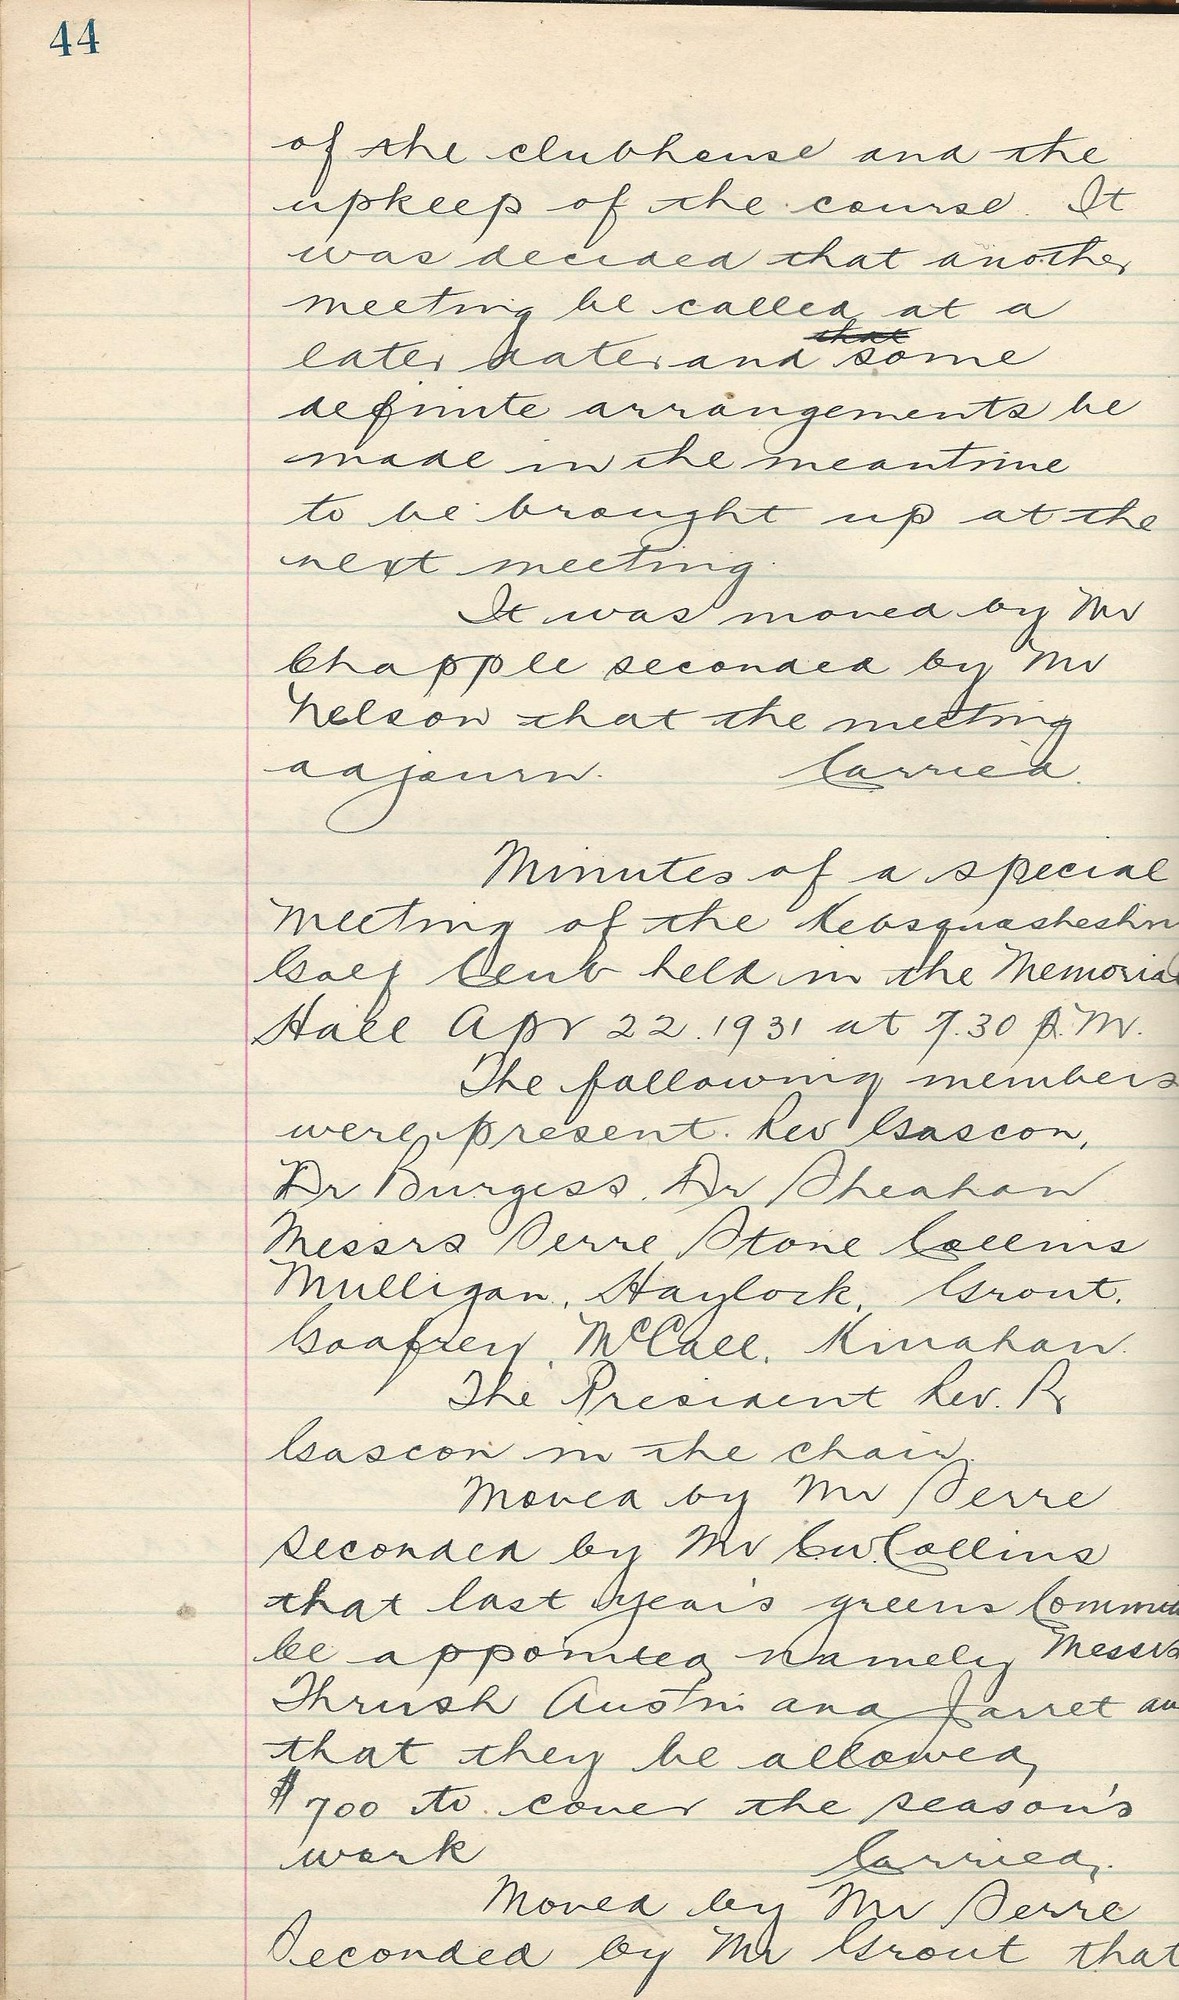 44
of the clubhouse and the
upkeep of the course. It
was decided that another
meeting be called at a
that
later date and some
definite arrangements be
made in the meantime
to be brought up at the
next meeting.
It was moved by Mr
Chapple seconded by Mr
Nelson that the meeting
adjourn. Carried.
Minutes of a special
meeting of the Kebsquasheshin
Golf Club held in the Memorial
Hall Apr 22. 1931 at 7.30 P.M.
The following members
were present. Rev Gascon,
Dr Burgess, Dr Sheahan
Messrs Serre Stone Collins
Mulligan, Haylock, Grout,
Goofrey, McCall, Kinahan.
The President Rev. R
Gascon in the chair.
Moved by Mr Serre
seconded by Mr C.W. Collins
that last year's greens Commit
be appointed namely Messrs
Thrush Austin and Jarret an
that they be allowed
$700 to cover the season's
work Carried.
Moved by Mr Serre
Seconded by Mr Grout that